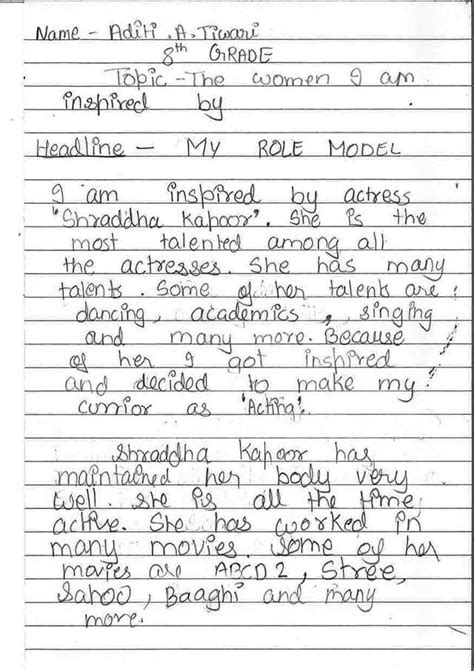 Name - Aditi .A. Tiwari
8th GRADE
Topic - The women I am
inspired by
Headline - MY ROLE MODEL
I am inspired by actress
"Shraddha Kapoor". She is the
most talented among all
the actresses. She has many
talents. Some of her talent are :
dancing, academics, singing
and many more. Because
of her I got inshired
and decided to make my
currior as 'Acting'.
Shraddha Kapoor has
maintained her body very
well. She is all the time
active. She has worked in
many movies. Some of her
movies are ABCD2, Stree,
Sahoo, Baaghi and many
more.